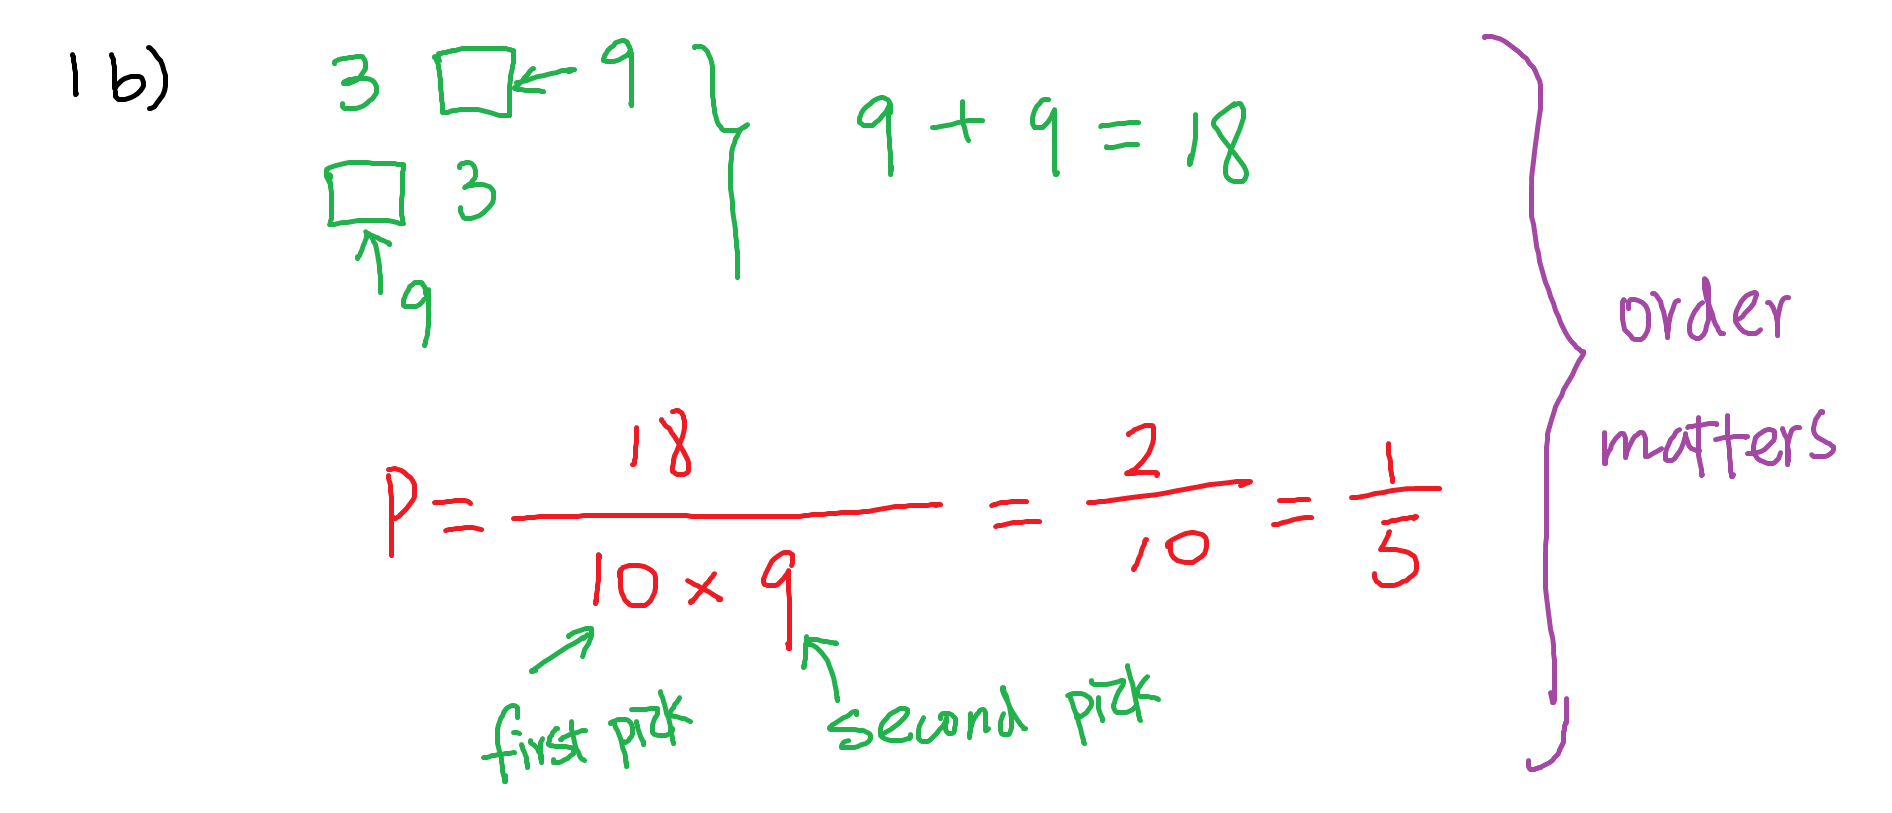 1 b)
3 □ ← 9
□ 3
↑
9
9 + 9 = 18
P = 18 / 10 × 9 = 2 / 10 = 1 / 5
first pick
second pick
order
matters